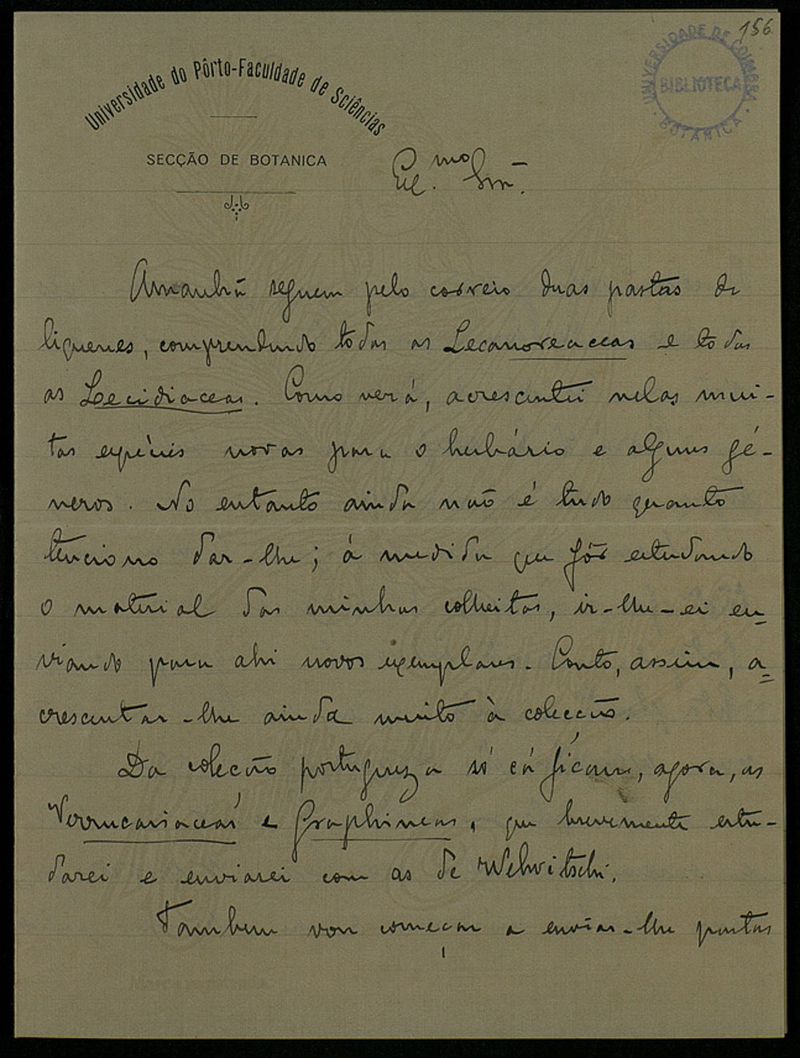 156
UNIVERSIDADE DE COIMBRA
BIBLIOTECA
BOTANICA
Universidade do Pôrto-Faculdade de Sciências
SECÇÃO DE BOTANICA
Ex.mo Snr.
Amanhã seguem pelo correio duas pastas de
liquenes, comprendendo todas as Lecanoreaceas e todas
as Lecidiaceas. Como verá, acrescentei nelas mui-
tas espécies novas para o herbário e alguns gé-
neros. No entanto ainda não é tudo quanto
tenciono dar-lhe; á medida que fôr estudando
o material das minhas colheitas, ir-lhe-ei en-
viando para ahi novos exemplares. Conto, assim, a-
crescentar-lhe ainda muito à colecção.
Da colecção portugueza só cá ficam, agora, as
Verrucariaceas e Graphineas, que brevemente estu-
darei e enviarei com as de Welwitschi.
Tambem vou começar a enviar-lhe pastas